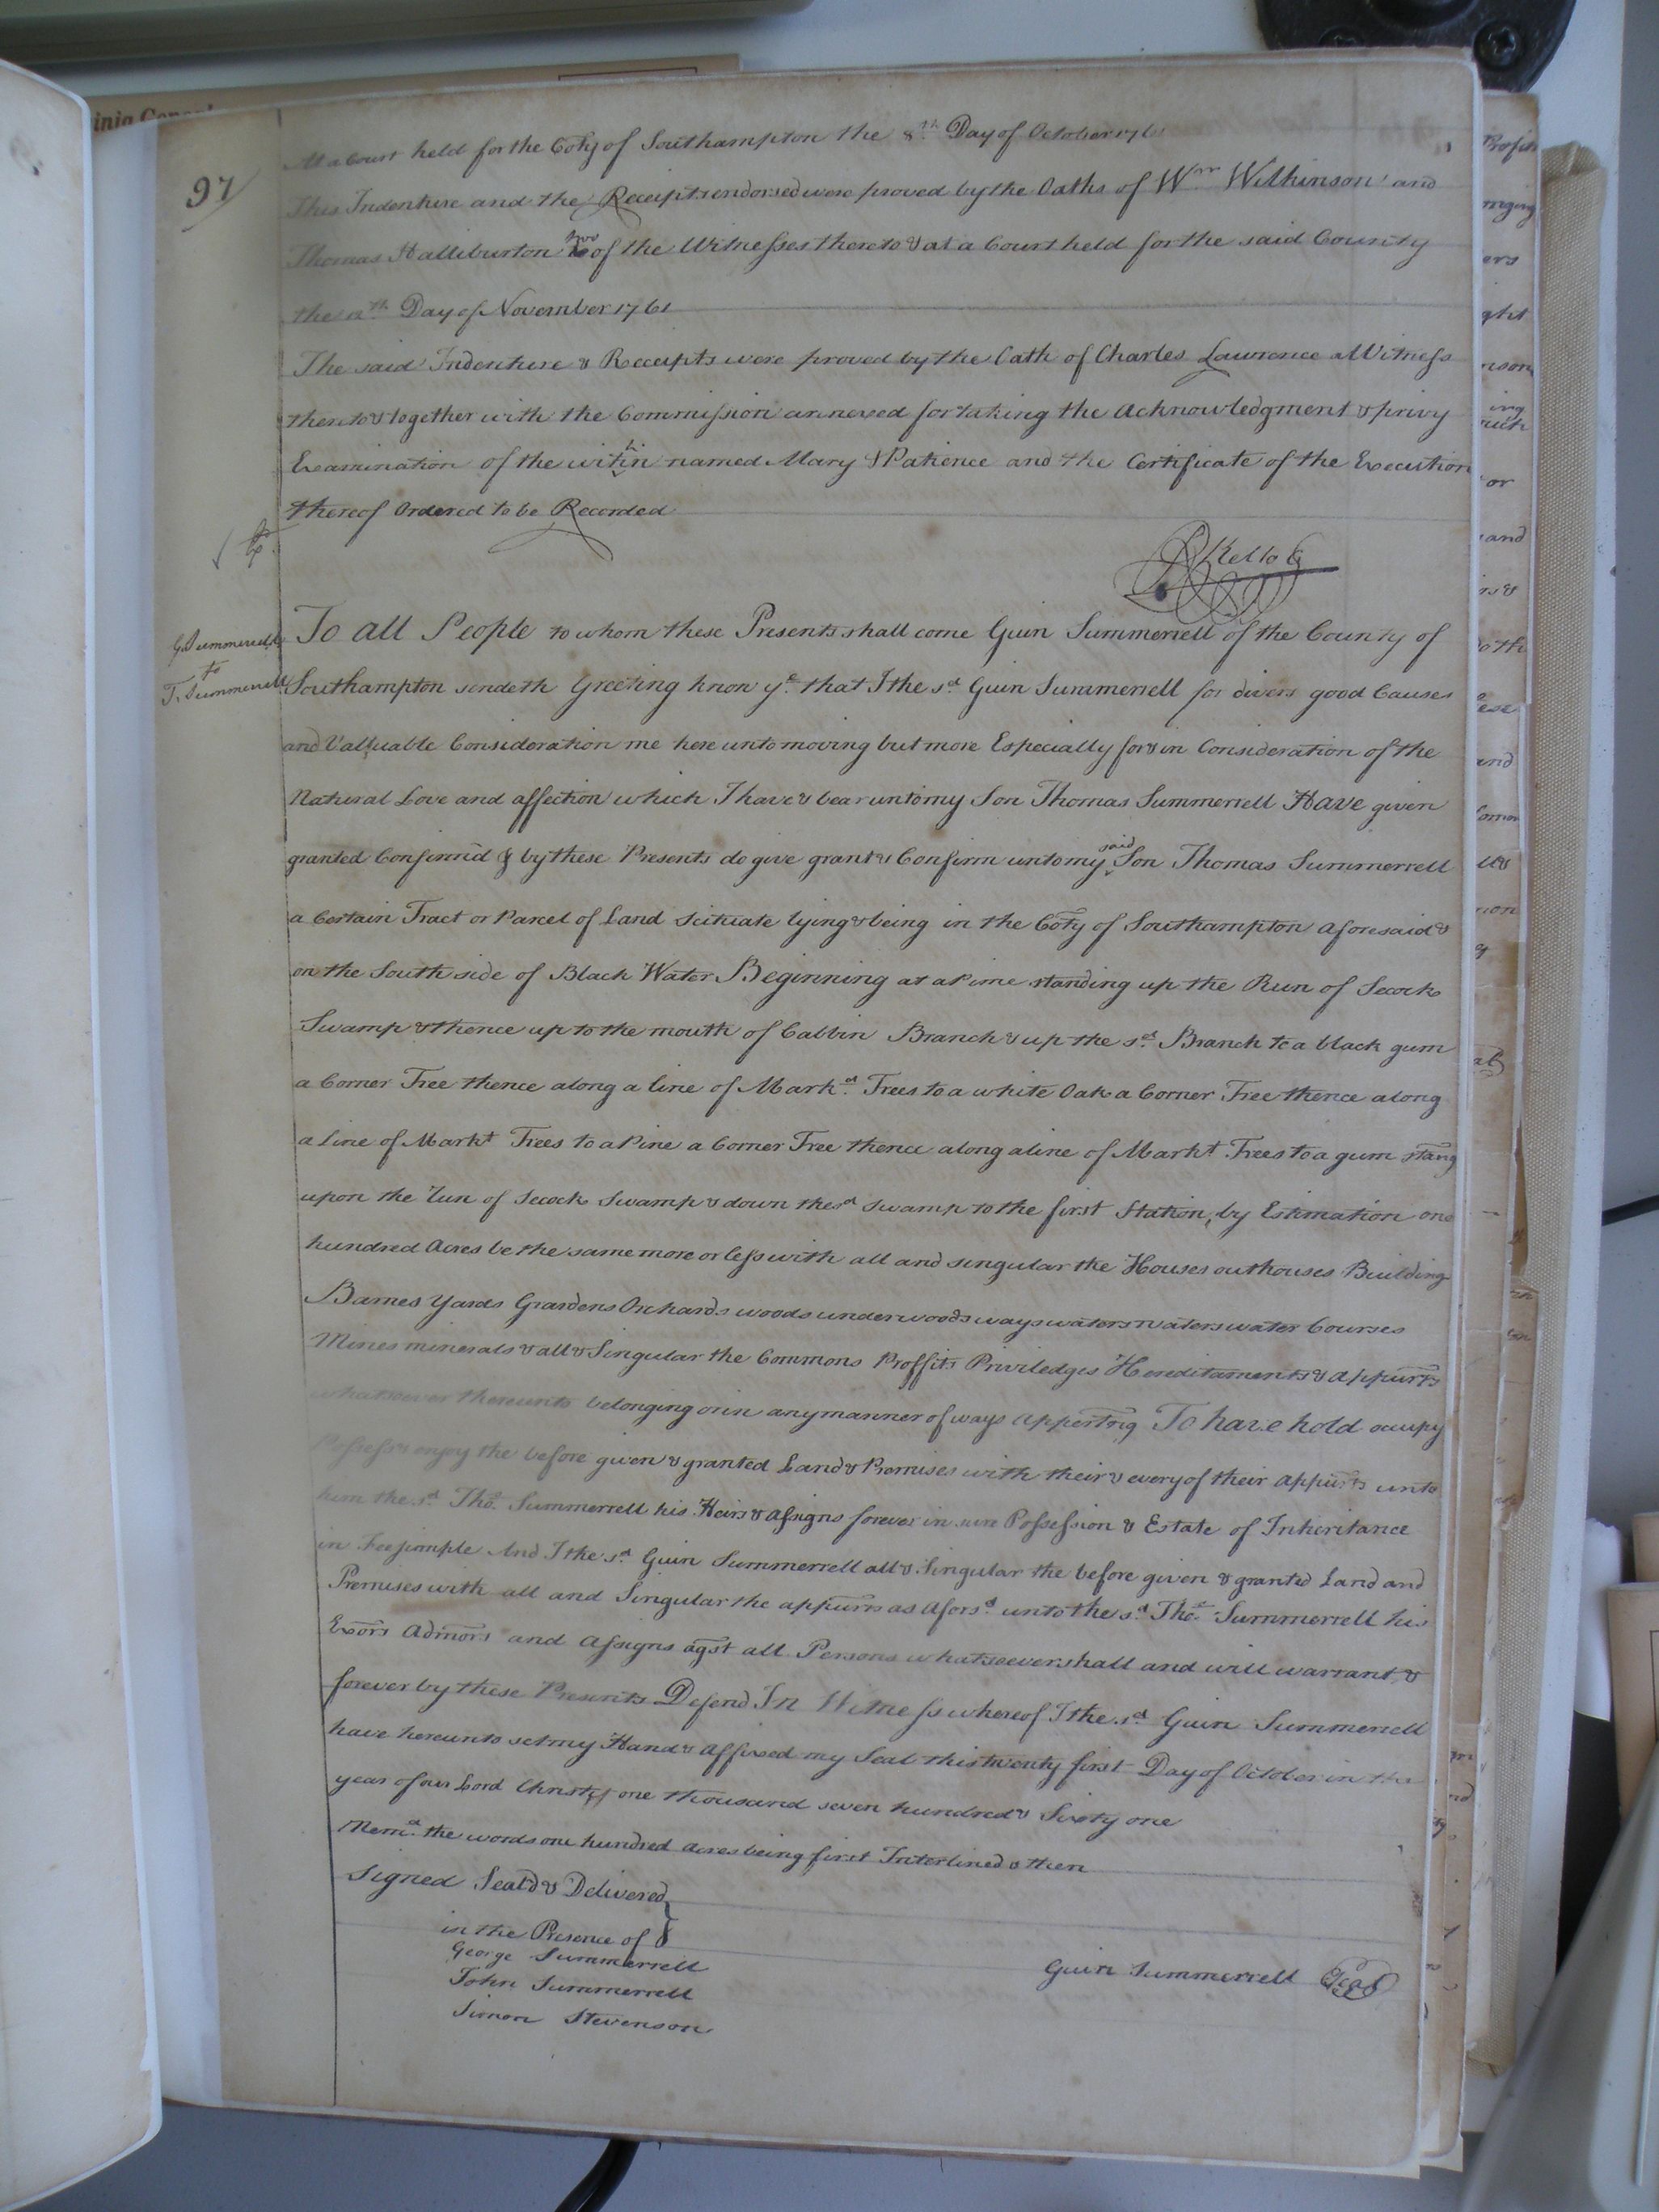 97
At a Court held for the Coty of Southampton the 8th Day of October 1761
This Indenture and the Receipts endorsed were proved by the Oaths of Wm Wilkinson and
Thomas Halliburton two of the Witnesses thereto & at a Court held for the said County
the 12th Day of November 1761
The said Indenture & Receipts were proved by the Oath of Charles Lawrence a Witness
thereto & together with the Commission annexed for taking the Acknowledgment & privy
Examination of the within named Mary & Patience and the Certificate of the Execution
thereof Ordered to be Recorded
RKello
G Summerell
to
T. Summerrell
To all People to whom these Presents shall come Guin Summerrell of the County of
Southampton sendeth Greeting know ye that I the sd Guin Summerrell for divers good Causes
and Valuable Consideration me here unto moving but more Especially for & in Consideration of the
Natural Love and affection which I have & bear unto my Son Thomas Summerrell Have given
granted Confirm'd & by these Presents do give grant & Confirm unto my said Son Thomas Summerrell
a Certain Tract or Parcel of Land Scituate lying & being in the Coty of Southampton aforesaid &
on the South side of Black Water Beginning at a Pine standing up the Run of Secock
Swamp & thence up to the mouth of Cabbin Branch & up the sd Branch to a black gum
a Corner Tree thence along a line of Markd Trees to a white Oak a Corner Tree thence along
a line of Markt Trees to a Pine a Corner Tree thence along a line of Markt Trees to a gum stang
upon the Run of Secock Swamp & down the sd swamp to the first Station, by Estimation one
hundred Acres be the same more or less with all and singular the Houses outhouses Building
Barnes Yards Grardens Orchards woods underwoods ways waters waters water Courses
Mines minerals & all & Singular the Commons Proffits Priviledges Hereditaments & appurts
whatsoever thereunto belonging or in any manner of ways appertng To have hold occupy
Possess & enjoy the before given & granted Land & Premises with their & every of their appurts unto
him the sd Tho. Summerrell his Heirs & Assigns forever in sure Possession & Estate of Inheritance
in Fee simple And I the sd Guin Summerrell all & Singular the before given & granted Land and
Premises with all and Singular the appurts as afors.d unto the sd Tho. Summerrell his
Exors Admors and Assigns agst all Persons whatsoever shall and will warrant &
forever by these Presents Defend In Witness whereof I the sd Guin Summerrell
have hereunto set my Hand & Affixed my Seal this twenty first Day of October in the
year of our Lord Christ one thousand seven hundred & Sixty one
Memd the words one hundred acres being first Interlined & then
Signed Seal'd & Delivered
in the Presence of
George Summerrell
John Summerrell
Simon Stevenson
Guin Summerrell Seal